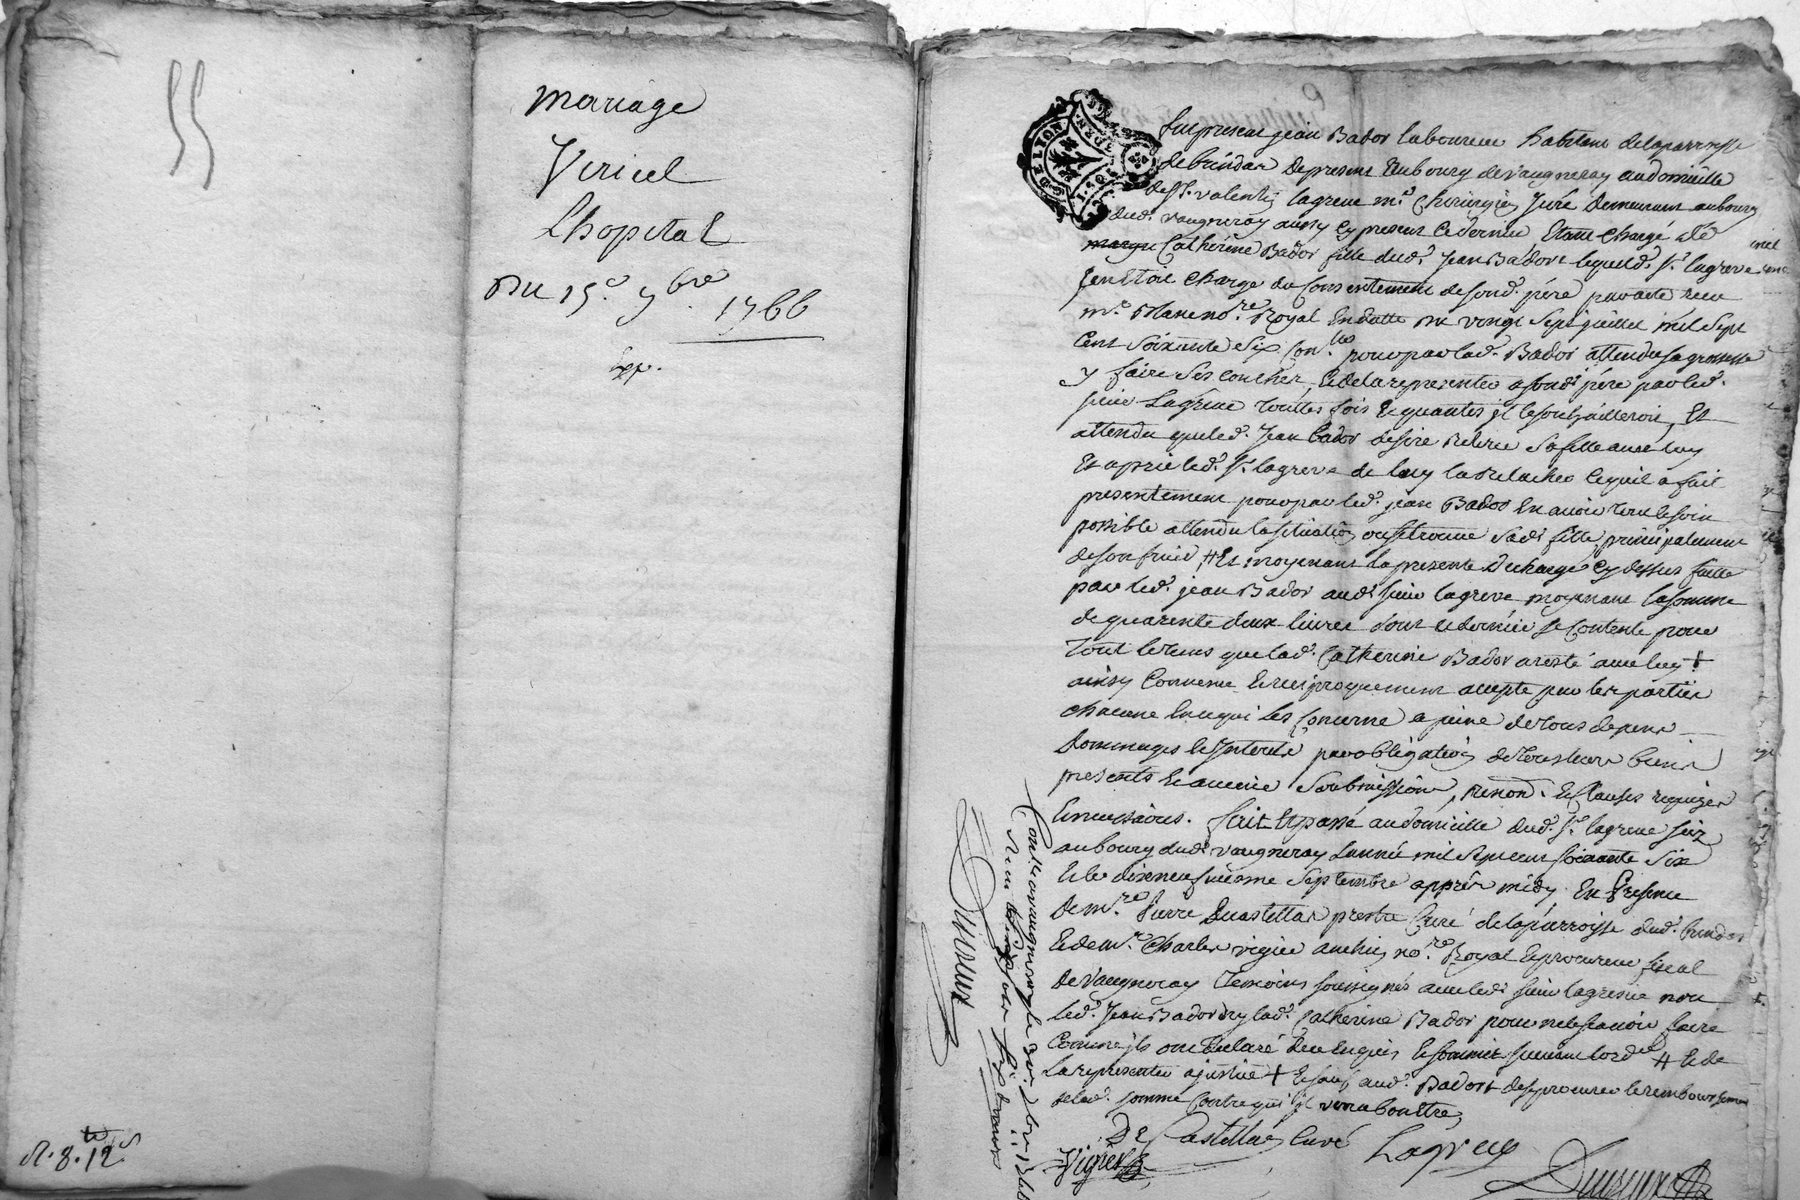 Mariage
Viricel
Lhopital
Du 15e. 7bre. 1766
R. 8. 12s
DE LION
Fut present jean Bador laboureur habitant de la parroisse
de brindas de present au bourg de vaugneray au domicille
de Sr. valentin lagreve me. chirurgien juré demeurant au bourg
dud. vaugneray aussy cy present ce dernier etant chargé de
Catherine Bador fille dud. jean Bador lequel d. Sr. lagreve
s'en etoit chargé du consentement de sond. père par acte reçu
me. nore. Royal en datte du vingt sept juillet mil sept
cent soixante six pour par lad. Bador attendu sa grossesse
y faire ses couches, et de la representer a sond. père par led.
sieur Lagreve touttes fois et quantes il le souhaitteroit, Et
attendu que led. jean Bador desire retirer sa fille avec luy
Et a prié led. Sr. lagreve de luy la relacher ce qu'il a fait
presentement pour par led. jean Bador en avoir tout le soin
possible attendu la situation ou se trouve sad. fille principalement
de son fruit, # Et moyenant la presente decharge cy dessus faitte
par led. jean Bador aud. sieur lagreve moyenant la somme
de quarente deux livres dont ce dernier se contente pour
tout le tems que lad. Catherine Bador a resté avec luy +
ainsy convenu et reciproquement accepté par les parties
chacune en ce qui les concerne a peine de tous depens
dommages et interets par obligation de tous leurs biens
presents et avenir soubmissions, renond. et clauses requises
et necessaires. fait et passé au domicille dud. Sr. lagreve sciz
au bourg dud. vaugneray l'année mil sept cent soixante six
et le dixneufvieme septembre apprès midy. En presence
de mre. Pierre Decastellas prestre curé de la parroisse dud. brindas
et de me. Charles vigier ancien nore. Royal et procureur fiscal
de Vaugneray temoins soussignés avec led. sieur lagreve non
led. jean Bador ny lad. Catherine Bador pour ne le scavoir faire
comme ils ont declaré de ce enquis et sommés suivant l'ord.ce # et de
la representer a justice + et sauf aud. Bador de se procurer le remboursement
de lad. somme contre qui il verra bon être,
De Castellas curé Lagreve
Vigier
Duvieux
Controlé a vaugneray le 7bre 1766
Reçu
Duvieux